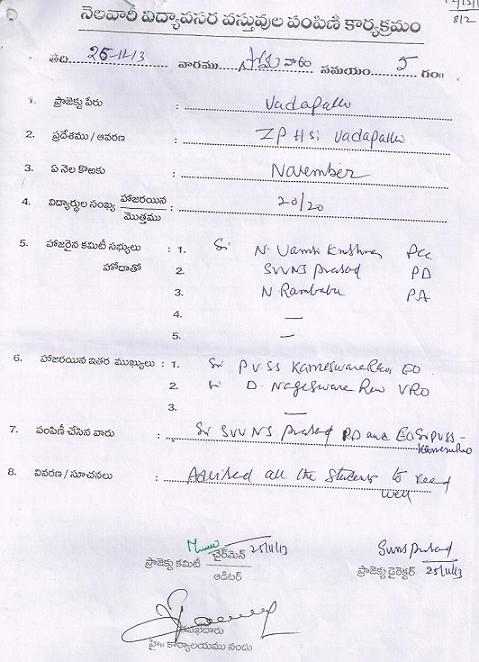 నెలవారీ విద్యావసర వస్తువుల పంపిణీ కార్యక్రమం
8/2
తేది 25-11-13 వారము సోమవారం సమయం 5 గం॥
1. ప్రాజెక్టు పేరు : Vadapalli
2. ప్రదేశము / ఆవరణ : ZPHS: Vadapalli
3. ఏ నెల కొఱకు : November
4. విద్యార్థుల సంఖ్య హాజరయిన / మొత్తము : 20/20
5. హాజరైన కమిటీ సభ్యులు : 1. Sri N. Vamsi Krishna PCC
హోదాతో 2. SVVNS Prasad PD
3. N. Rambabu PA
4. —
5. —
6. హాజరయిన ఇతర ముఖ్యులు : 1. Sri PVSS Kameswara Rao EO.
2. Sri D. Nageswara Rao VRO
3. —
7. పంపిణీ చేసిన వారు : Sri SVVNS Prasad PD and EO Sri PVSS-
Kameswara Rao
8. వివరణ / సూచనలు : Advised all the Students to read
well
25/11/13 Svvns Prasad
ప్రాజెక్టు కమిటీ చైర్‌మెన్ ప్రాజెక్టు డైరెక్టర్ 25/11/13
ఆడిటర్
హైII కార్యాలయము నందు